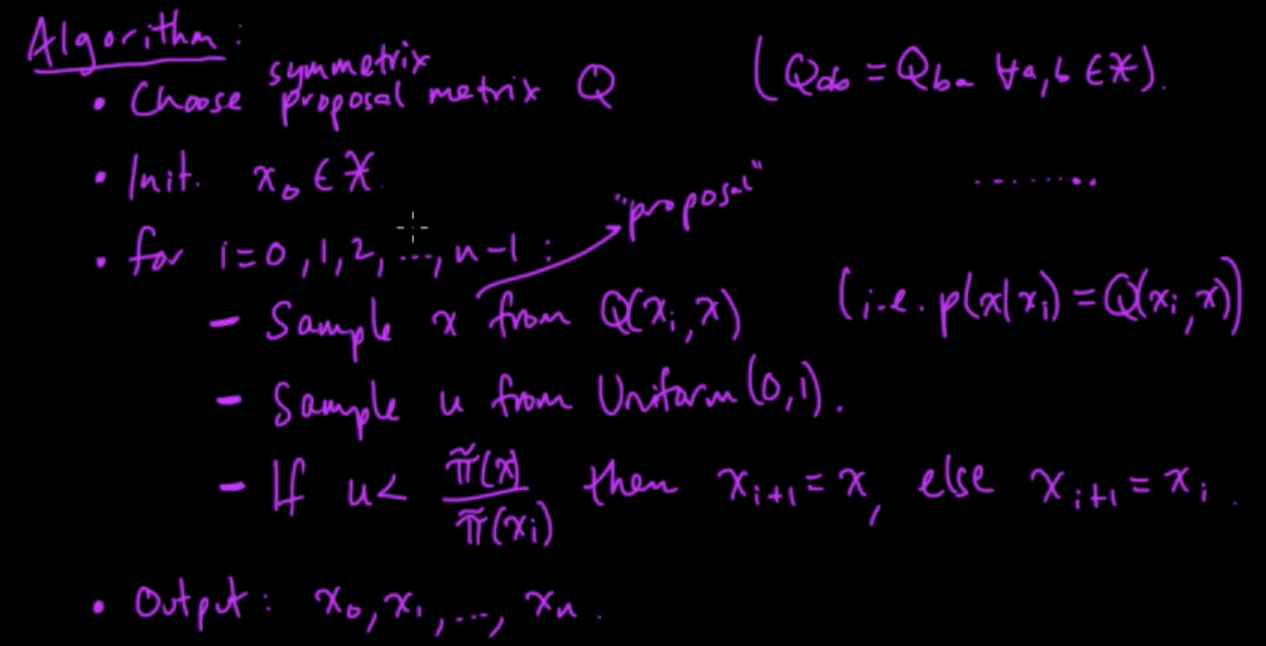 Algorithm:
• Choose symmetrix proposal metrix Q (Q_ab = Q_ba ∀a,b ∈ X).
• Init. x_0 ∈ X.
.........
"proposal"
• for i=0,1,2,...,n-1:
- Sample x from Q(x_i, x) (i.e. p(x|x_i) = Q(x_i, x))
- Sample u from Uniform(0,1).
- If u < π̃(x)/π̃(x_i) then x_{i+1} = x, else x_{i+1} = x_i.
• Output: x_0, x_1, ..., x_n.